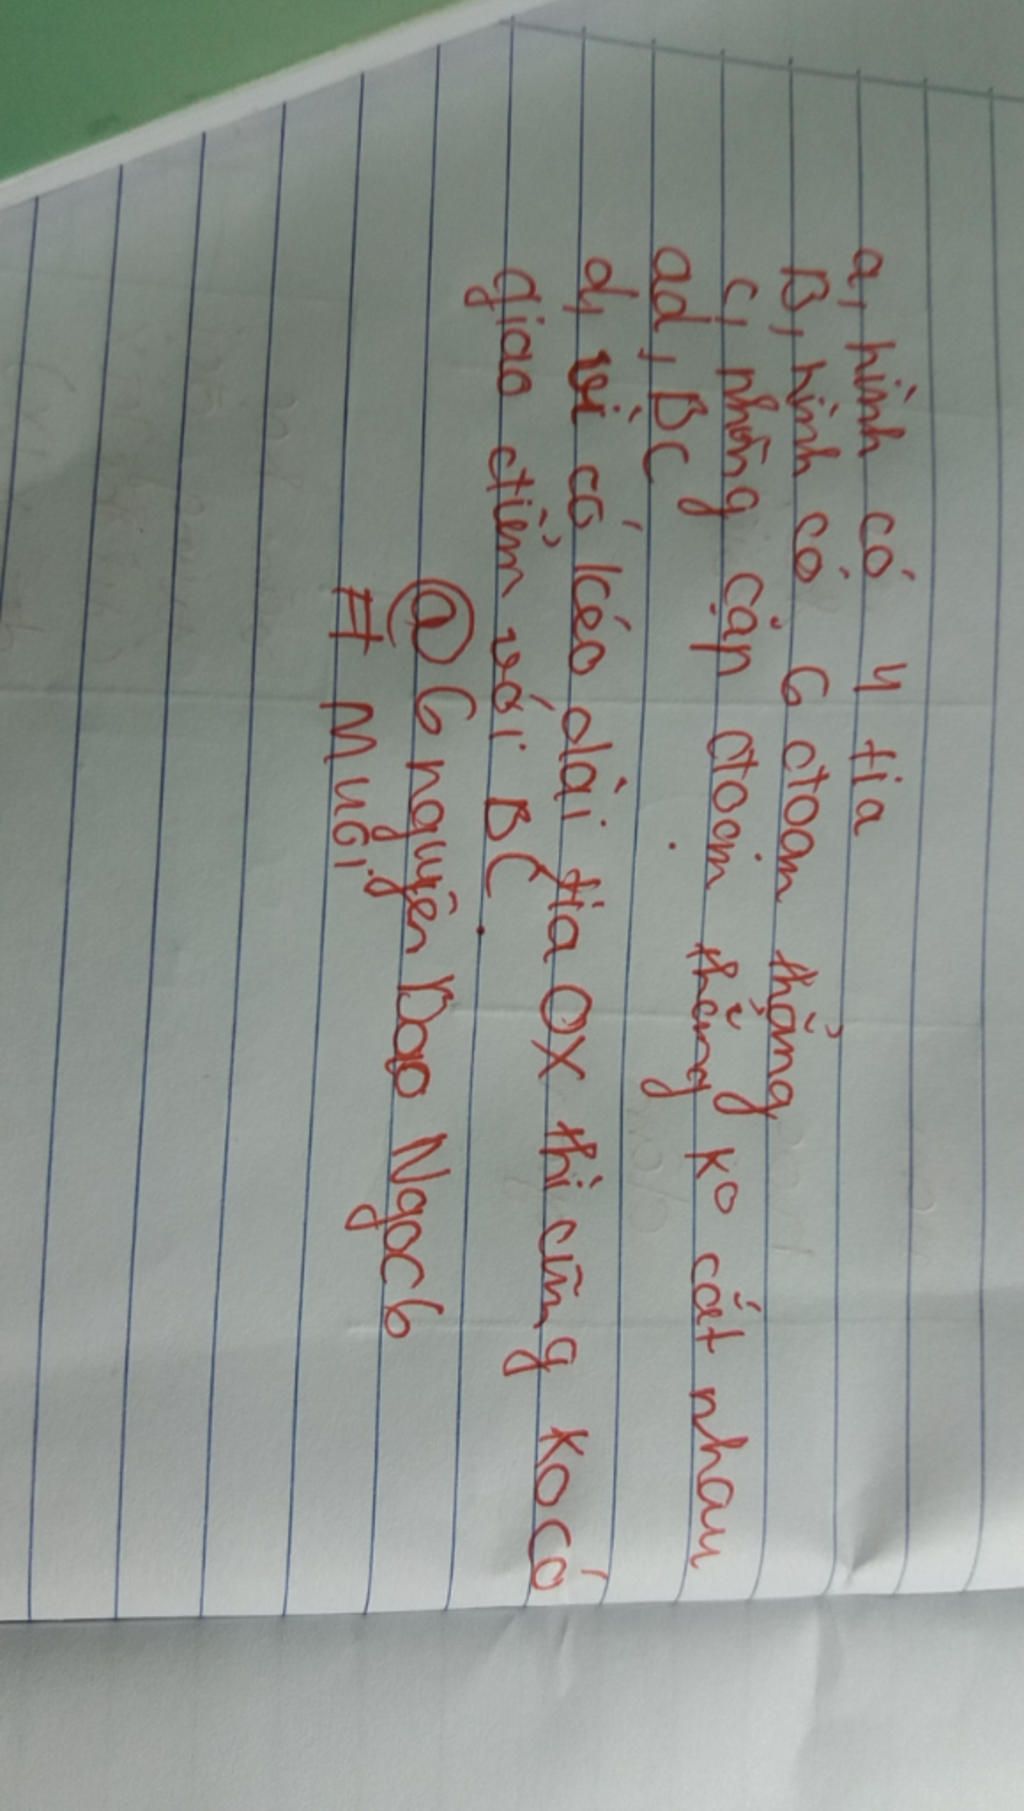 a, hình có 4 tia
B, hình có 6 đoạn thẳng
c, những cặp đoạn thẳng ko cắt nhau
ad, BC
d, vì có kéo dài tia OX thì cũng ko có
giao điểm với BC.
@6 nguyên Dao Ngoc6
# Muối